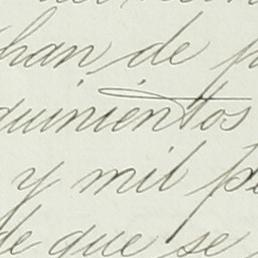 han de
quinientos
y mil
de que se